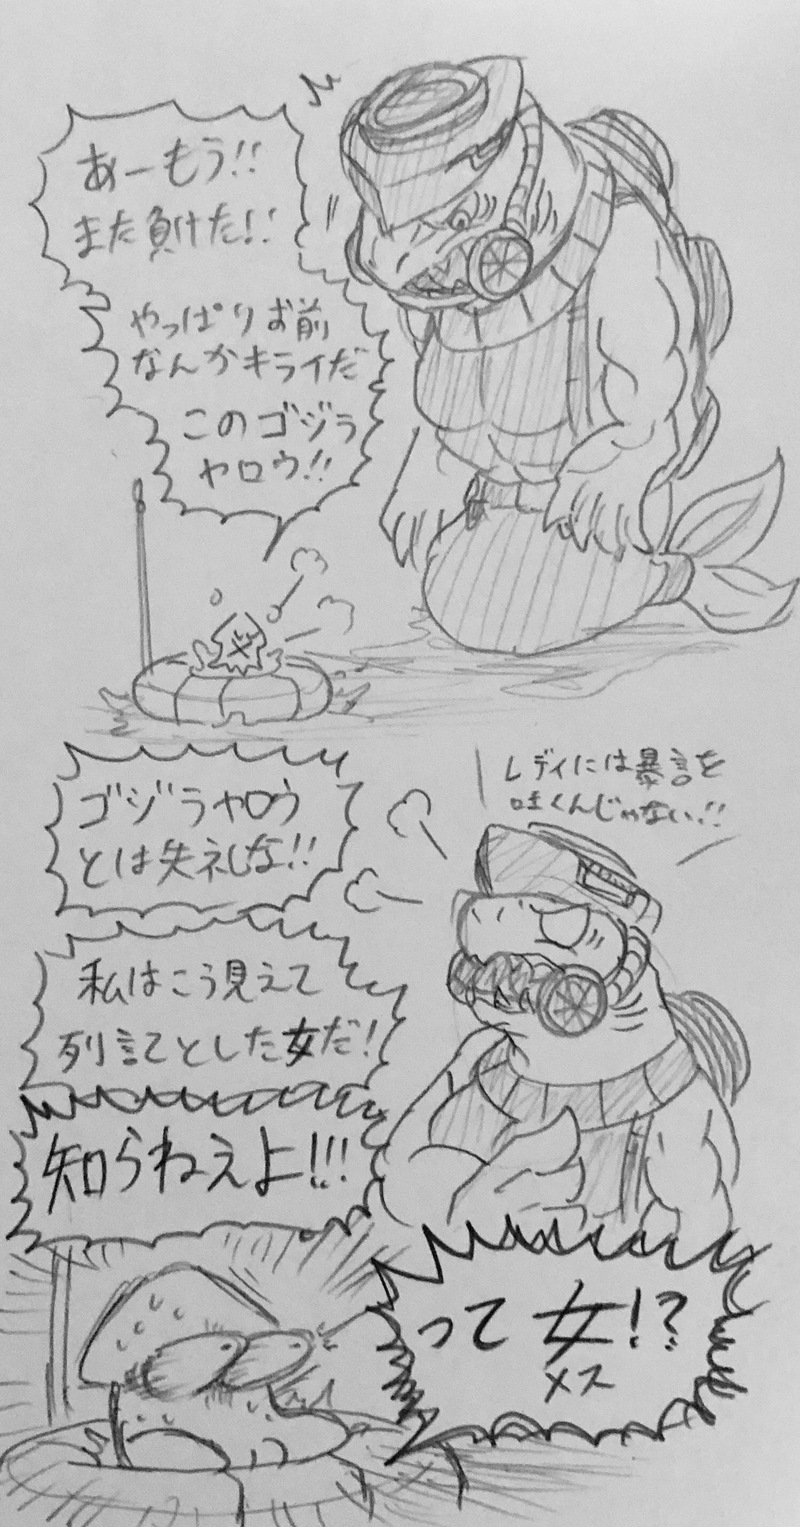 あーもう!!
また負けた!!
やっぱりお前
なんかキライだ
このゴジラ
ヤロウ!!
レディには暴言を
吐くんじゃない!!
ゴジラヤロウ
とは失礼な!!
私はこう見えて
列記とした女だ!
知らねえよ!!!
って女!?
メス